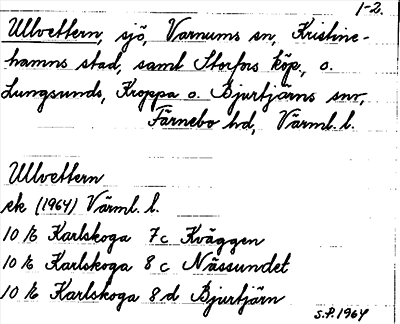 1-2.
Ullvettern, sjö, Varnums sn, Kristine-
hamns stad, samt Storfors köp, o.
Lungsunds, Kroppa o. Bjurtjärns snr,
Färnebo hd, Värml. l.
Ullvettern
ek (1964) Värml. l.
10 B Karlskoga 7c Kväggen
10 B Karlskoga 8c Nässundet
10 B Karlskoga 8d Bjurtjärn
S.P. 1964